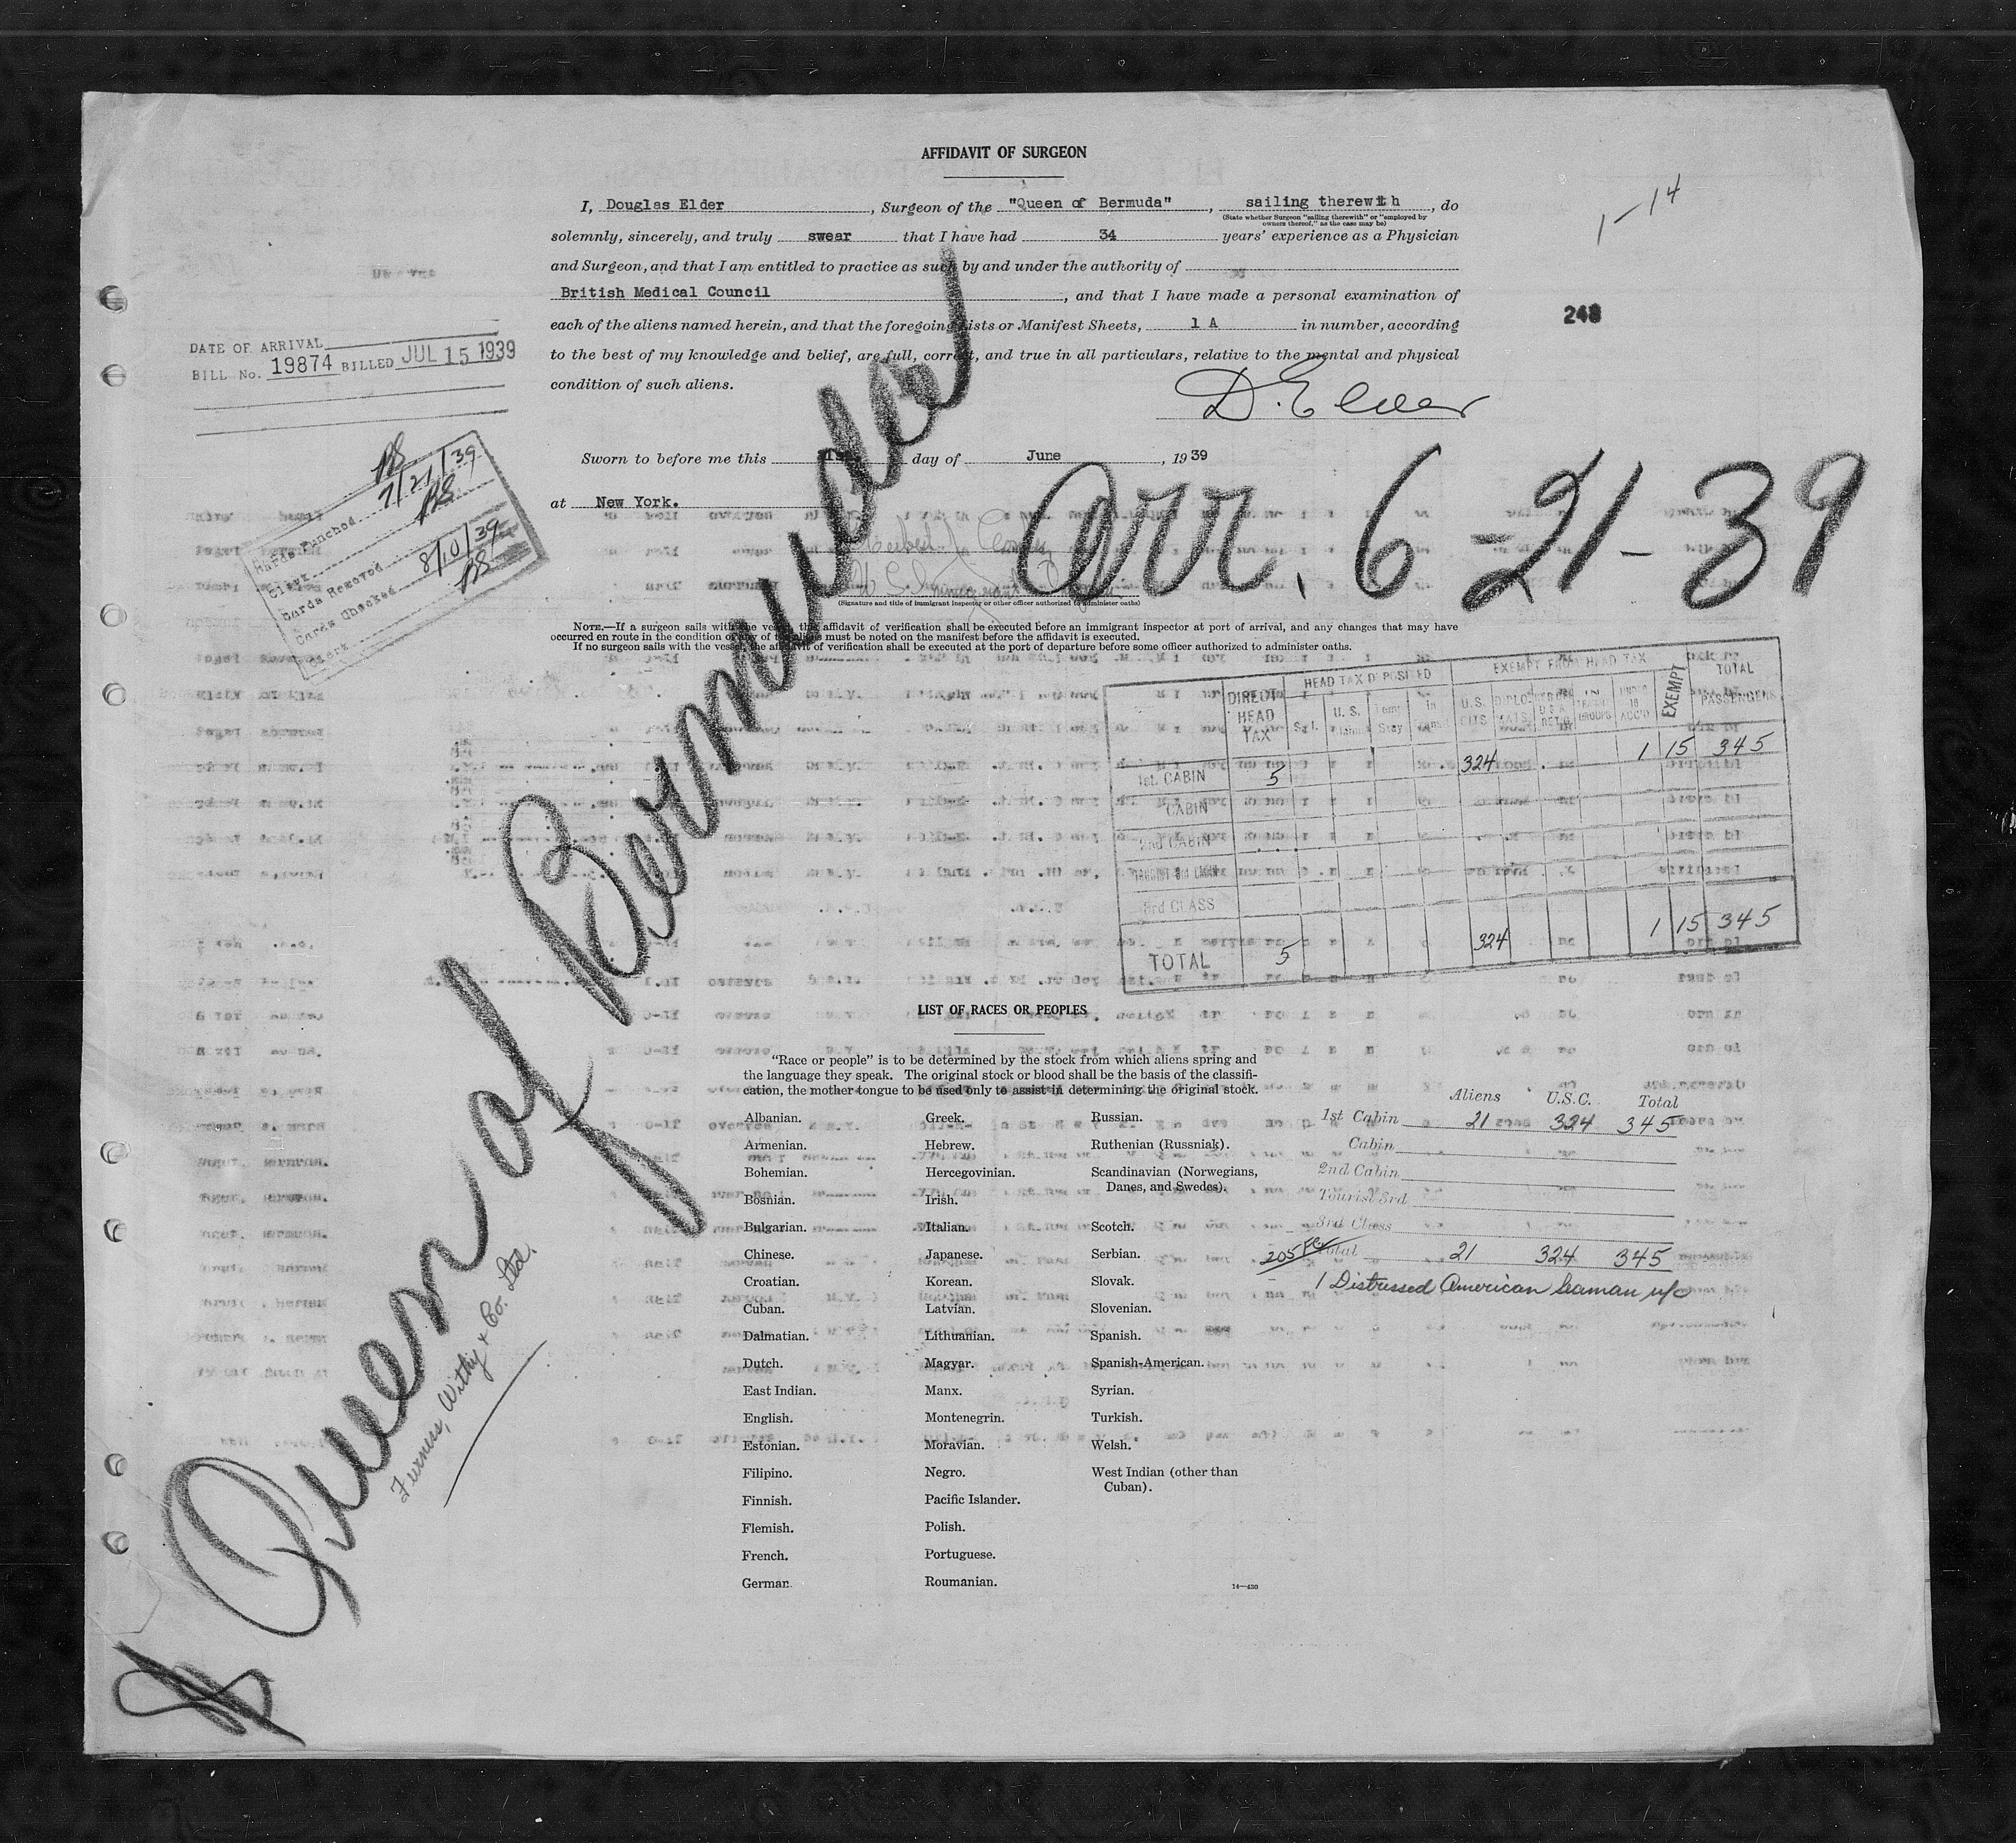 AFFIDAVIT OF SURGEON
I, Douglas Elder, Surgeon of the "Queen of Bermuda", sailing therewith, do
(State whether Surgeon "sailing therewith" or "employed by
owners thereof," as the case may be)
solemnly, sincerely, and truly swear that I have had 34 years' experience as a Physician
and Surgeon, and that I am entitled to practice as such by and under the authority of
British Medical Council, and that I have made a personal examination of
each of the aliens named herein, and that the foregoing Lists or Manifest Sheets, 1 A in number, according
to the best of my knowledge and belief, are full, correct, and true in all particulars, relative to the mental and physical
condition of such aliens.
D. Elder
Sworn to before me this day of June, 1939
at New York.
(Signature and title of immigrant inspector or other officer authorized to administer oaths)
NOTE.—If a surgeon sails with the vessel, this affidavit of verification shall be executed before an immigrant inspector at port of arrival, and any changes that may have
occurred en route in the condition of any of the aliens must be noted on the manifest before the affidavit is executed.
If no surgeon sails with the vessel, the affidavit of verification shall be executed at the port of departure before some officer authorized to administer oaths.
1-14
248
DATE OF ARRIVAL
BILL No. 19874 BILLED JUL 15 1939
Cards Punched 7/21/39
Clerk
Cards Removed 8/10/39
Cards Checked
Clerk
Arr. 6-21-39
Queen of Bermuda
Furness, Withy & Co. Ltd.
DIRECT HEAD TAX
HEAD TAX DEPOSITED
EXEMPT FROM HEAD TAX
EXEMPT
TOTAL PASSENGERS
U.S. CITS
DIPLOMATS
1st. CABIN 5 324 1 15 345
CABIN
2nd CABIN
TOURIST 3rd CABIN
3rd CLASS
TOTAL 5 324 1 15 345
LIST OF RACES OR PEOPLES
"Race or people" is to be determined by the stock from which aliens spring and
the language they speak. The original stock or blood shall be the basis of the classifi-
cation, the mother tongue to be used only to assist in determining the original stock.
Albanian.
Armenian.
Bohemian.
Bosnian.
Bulgarian.
Chinese.
Croatian.
Cuban.
Dalmatian.
Dutch.
East Indian.
English.
Estonian.
Filipino.
Finnish.
Flemish.
French.
German.
Greek.
Hebrew.
Hercegovinian.
Irish.
Italian.
Japanese.
Korean.
Latvian.
Lithuanian.
Magyar.
Manx.
Montenegrin.
Moravian.
Negro.
Pacific Islander.
Polish.
Portuguese.
Roumanian.
Russian.
Ruthenian (Russniak).
Scandinavian (Norwegians,
Danes, and Swedes).
Scotch.
Serbian.
Slovak.
Slovenian.
Spanish.
Spanish-American.
Syrian.
Turkish.
Welsh.
West Indian (other than
Cuban).
14—430
Aliens U.S.C. Total
1st Cabin 21 324 345
Cabin
2nd Cabin
Tourist 3rd
3rd Class
Total 21 324 345
1 Distressed American Seaman